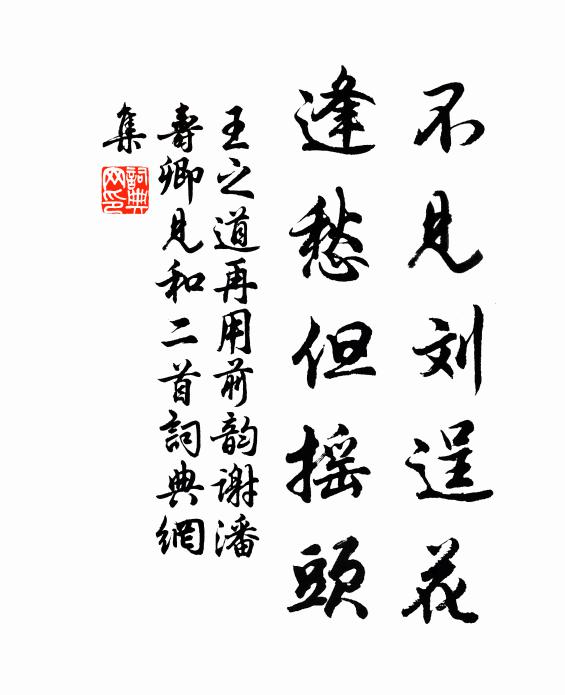 不见刘逞花
逢愁但摇頭
王之道再用前韵谢潘
壽卿见和二首詞典網
集
詞典
网印